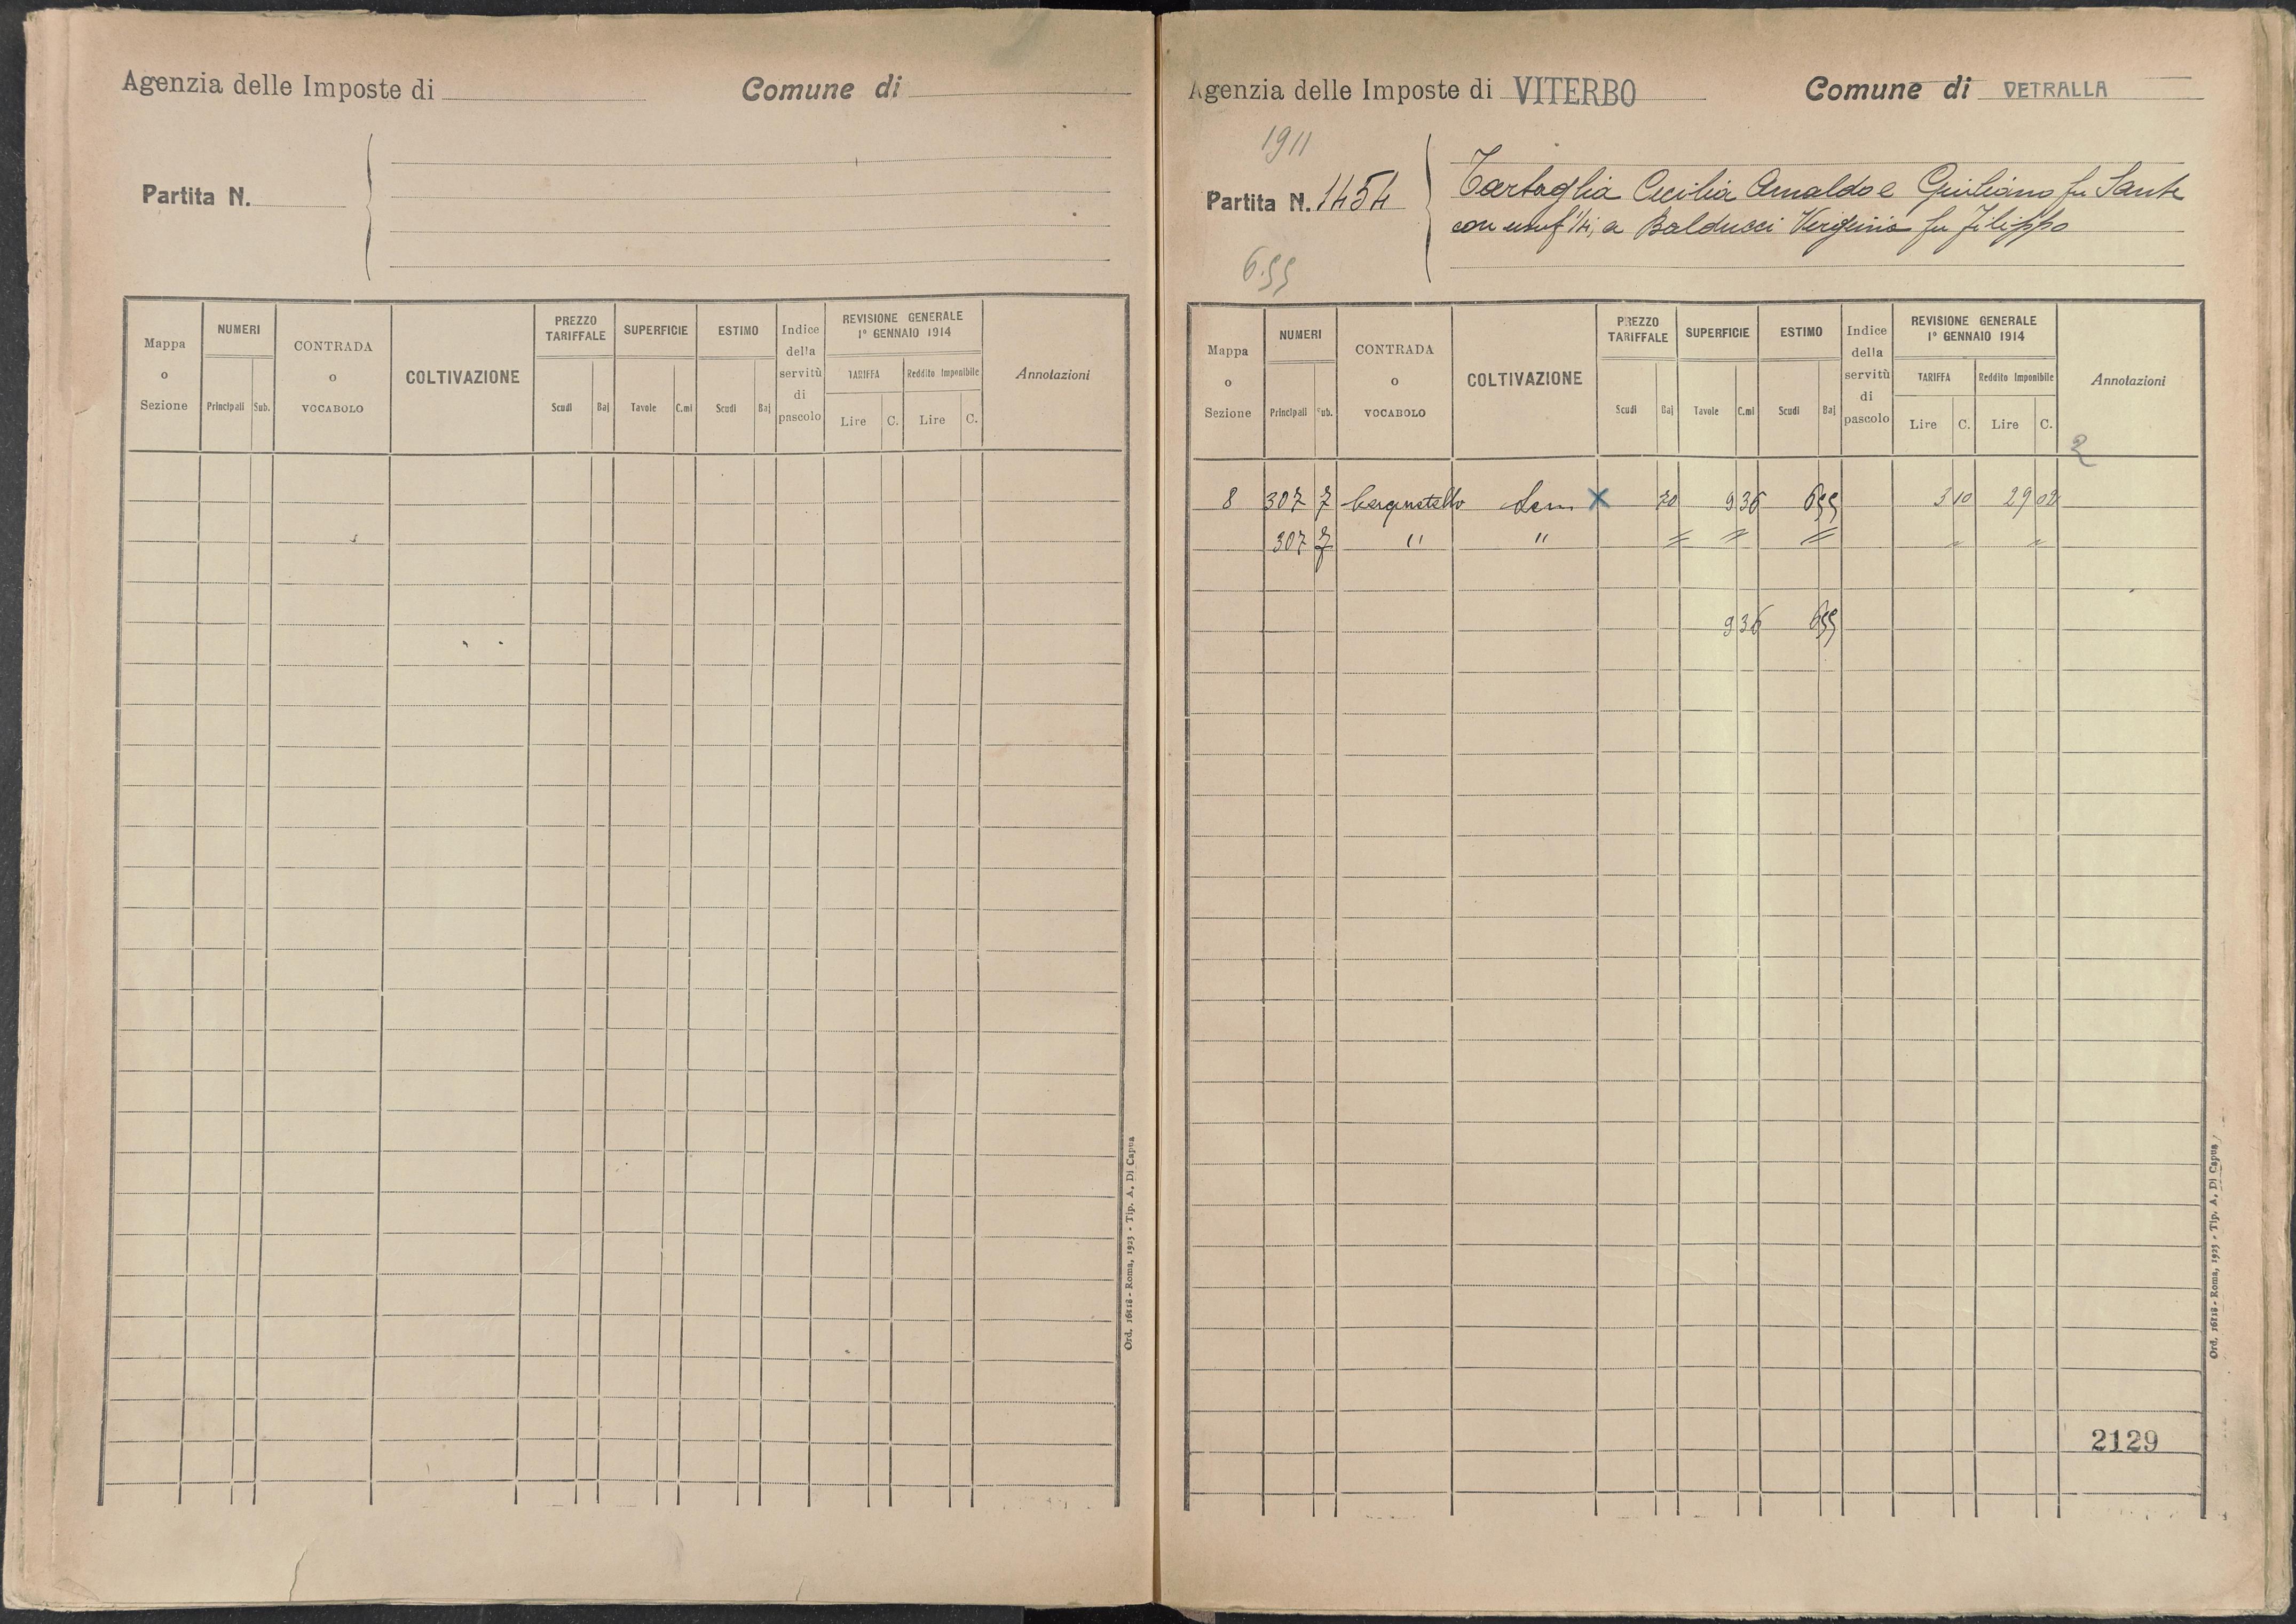 Agenzia delle Imposte di
Comune di
Partita N.
Mappa o Sezione
NUMERI
Principali Sub.
CONTRADA o VOCABOLO
COLTIVAZIONE
PREZZO TARIFFALE
Scudi Baj
SUPERFICIE
Tavole C.mi
ESTIMO
Scudi Baj
Indice della servitù di pascolo
REVISIONE GENERALE
1° GENNAIO 1914
TARIFFA
Lire C.
Reddito Imponibile
Lire C.
Annotazioni
Ord. 16118 - Roma, 1923 - Tip. A. Di Capua
Agenzia delle Imposte di VITERBO
Comune di VETRALLA
1911
Partita N. 1454
Tartaglia Cecilia Arnaldo e Giuliano fu Sante
con usuf 1/4, a Balducci Verginia fu Filippo
6.55
Mappa o Sezione
NUMERI
Principali Sub.
CONTRADA o VOCABOLO
COLTIVAZIONE
PREZZO TARIFFALE
Scudi Baj
SUPERFICIE
Tavole C.mi
ESTIMO
Scudi Baj
Indice della servitù di pascolo
REVISIONE GENERALE
1° GENNAIO 1914
TARIFFA
Lire C.
Reddito Imponibile
Lire C.
Annotazioni
2
8 307 7 Sem X 70 9 36 6 55 3 10 29 02
307 " " = = = " "
9 36 6 55
2129
Ord. 16118 - Roma, 1923 - Tip. A. Di Capua